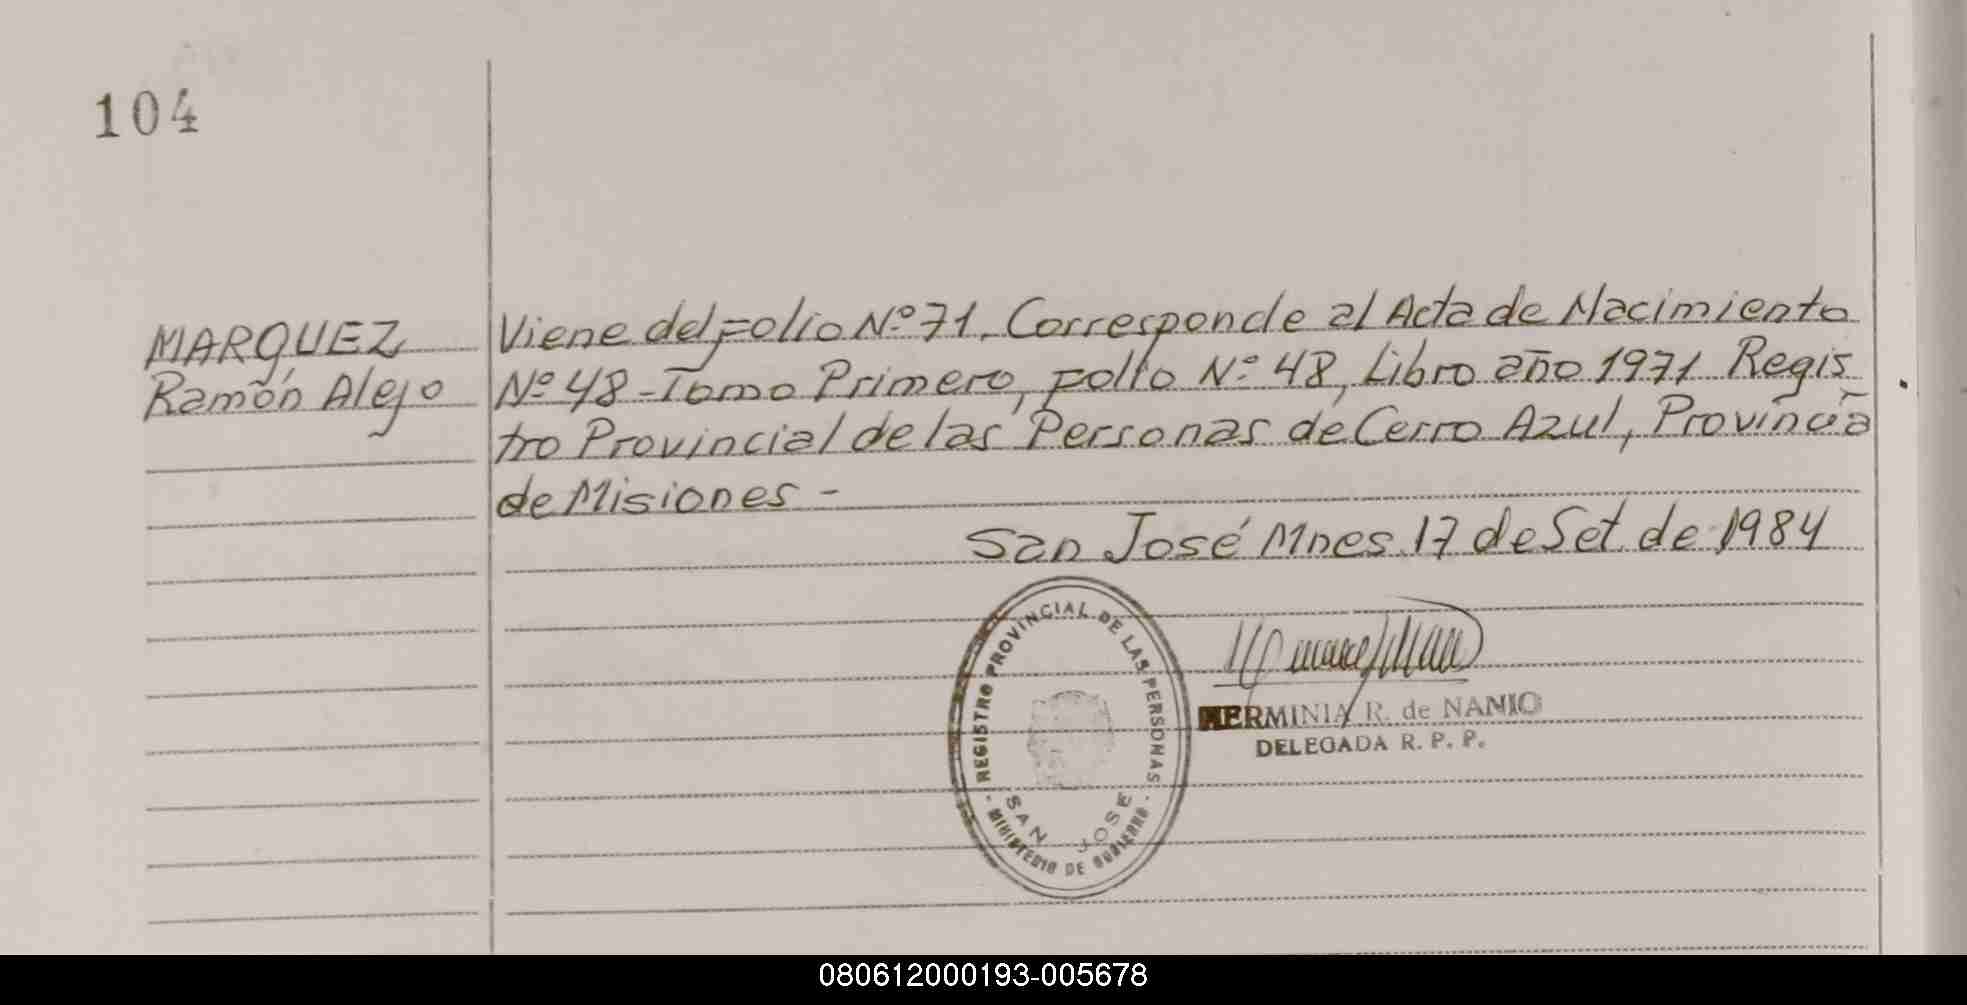 104
MARQUEZ
Ramón Alejo
Viene del Folio Nº 71. Corresponde al Acta de Nacimiento
Nº 48 - Tomo Primero, Folio Nº 48, Libro año 1971 Regis
tro Provincial de las Personas de Cerro Azul, Provincia
de Misiones -
San José Mnes. 17 de Set. de 1984
REGISTRO PROVINCIAL DE LAS PERSONAS
SAN JOSE
- MINISTERIO DE GOBIERNO -
HERMINIA R. de NANIO
DELEGADA R. P. P.
080612000193-005678